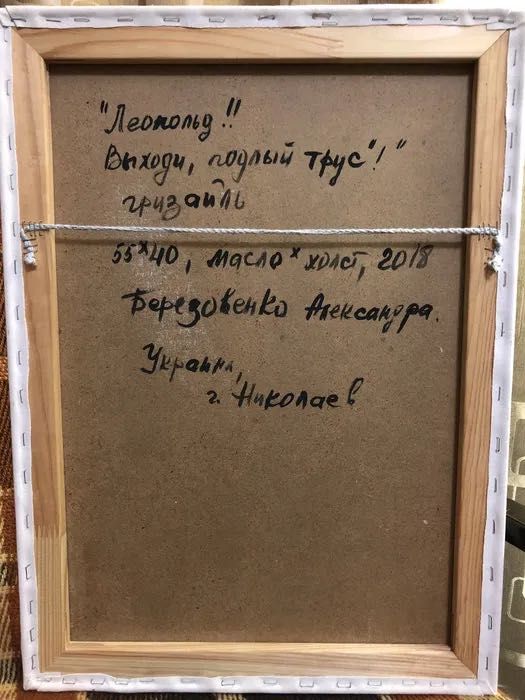 "Леопольд!!
Выходи, подлый трус"!"
гризайль
55x40, масло x холст, 2018
Березовенко Александра.
Украина,
г. Николаев